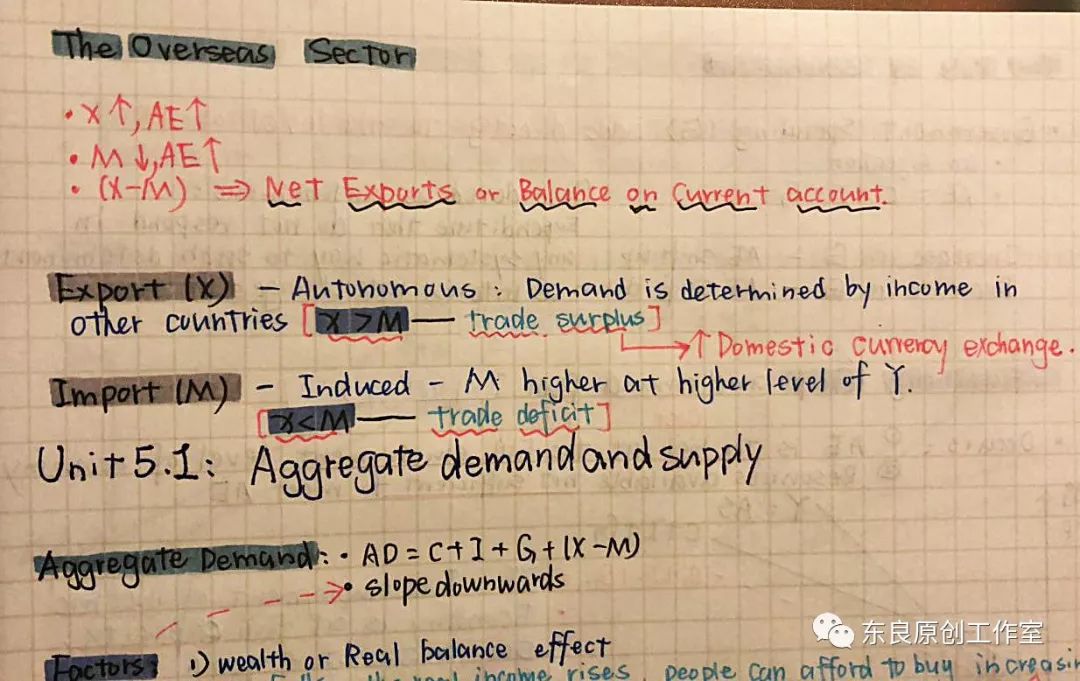 The Overseas Sector
• X ↑, AE ↑
• M ↓, AE ↑
• (X-M) ⇒ Net Exports or Balance on Current account.
Export (X) - Autonomous : Demand is determined by income in
other countries [X > M — trade surplus]
→ ↑ Domestic currency exchange.
Import (M) - Induced - M higher at higher level of Y.
[X < M — trade deficit]
Unit 5.1: Aggregate demand and supply
Aggregate Demand: • AD = C + I + G + (X-M)
• slope downwards
Factors: 1) wealth or Real balance effect
real income rises, people can afford to buy
东良原创工作室